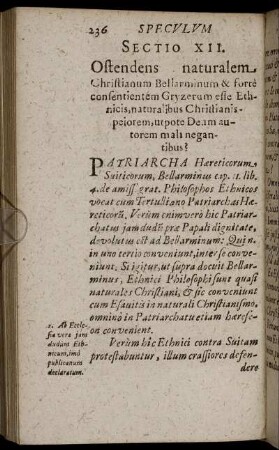 236 SPECVLVM
SECTIO XII.
Ostendens naturalem
Christianum Bellarminum & fortè
consentientem Gryzerum esse Eth-
nicis, naturalibus Christianis
peiorem, utpote Deum au-
torem mali negan-
tibus?
PATRIARCHA Hæreticorum
Suiticorum, Bellarminus cap. 11. lib.
4. de amiss. grat. Philosophos Ethnicos
vocat cum Tertulliano Patriarchas Hæ-
reticorũ, Verùm enimvero hic Patriar-
chatus jam dudũ præ Papali dignitate,
devolutus est ad Bellarminum: Qui n.
in uno tertio conveniunt, inter se conve-
niunt. Si igitur, ut supra docuit Bellar-
minus, Ethnici Philosophi sunt quasi
naturales Christiani, & sic conveniunt
cum Esauitis in naturali Christianismo,
omninò in Patriarchatu etiam hærese-
os convenient.
1. Ab Eccle-
sia vera jam
dudum Eth-
nicum, imò
publicanum
declaratum.
Verùm hic Ethnici contra Suitam
protestabuntur, illum crassiores defen-
dero